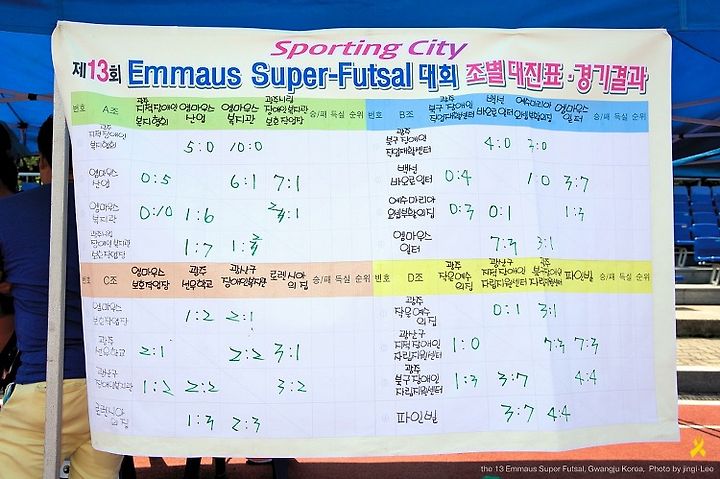 Sporting City
제13회 Emmaus Super-Futsal 대회 조별대진표·경기결과
번호 A조 광주지적장애인복지협회 엠마우스산업 엠마우스복지관 광주시립장애인복지관보호작업장 승/패 득실 순위
광주지적장애인복지협회 5:0 10:0
엠마우스산업 0:5 6:1 7:1
엠마우스복지관 0:10 1:6 :1
광주시립장애인복지관보호작업장 1:7 1:
번호 B조 광주북구장애인직업재활센터 백선바오로일터 예수마리아요셉부활의집 엠마우스일터 승/패 득실 순위
광주북구장애인직업재활센터 4:0 3:0
백선바오로일터 0:4 1:0 3:7
예수마리아요셉부활의집 0:3 0:1 1:3
엠마우스일터 7:3 3:1
번호 C조 엠마우스보호작업장 광주선우학교 광산구장애인복지관 로렌시아의집 승/패 득실 순위
엠마우스보호작업장 1:2 2:1
광주선우학교 2:1 2:2 3:1
광산구장애인복지관 1:2 2:2 3:2
로렌시아의집 1:3 2:3
번호 D조 광주작은예수의집 광산구지적장애인자립지원센터 광주북구장애인자립지원센터 파인빌 승/패 득실 순위
광주작은예수의집 0:1 3:1
광산구지적장애인자립지원센터 1:0 7:3 7:3
광주북구장애인자립지원센터 1:3 3:7 4:4
파인빌 3:7 4:4
the 13 Emmaus Super Futsal, Gwangju Korea, Photo by jingi-Lee